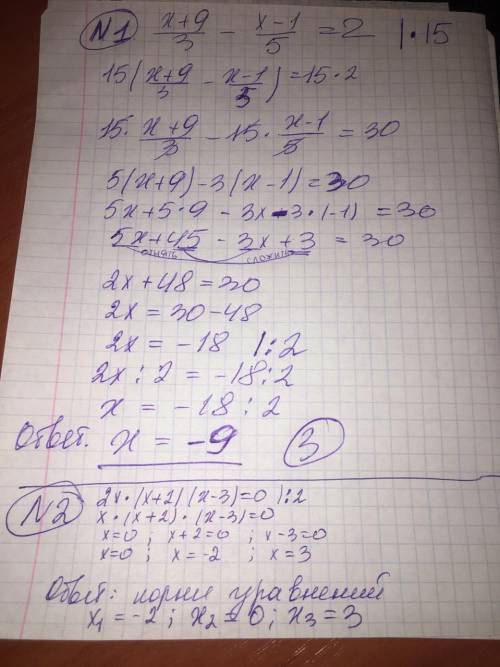 №1 (x+9)/3 - (x-1)/5 = 2 | · 15
15((x+9)/3 - (x-1)/5) = 15 · 2
15 · (x+9)/3 - 15 · (x-1)/5 = 30
5(x+9)-3(x-1)=30
5x+5·9 - 3x-3·(-1) = 30
5x+45 - 3x+3 = 30
отнять сложить
2x+48=30
2x = 30-48
2x = -18 |:2
2x : 2 = -18:2
x = -18 : 2
Ответ. x = -9 3
№2 2x·(x+2)(x-3)=0 |:2
x·(x+2)·(x-3)=0
x=0 ; x+2=0 ; x-3=0
x=0 ; x=-2 ; x=3
Ответ: корни уравнений
x₁ = -2 ; x₂ = 0; x₃ = 3